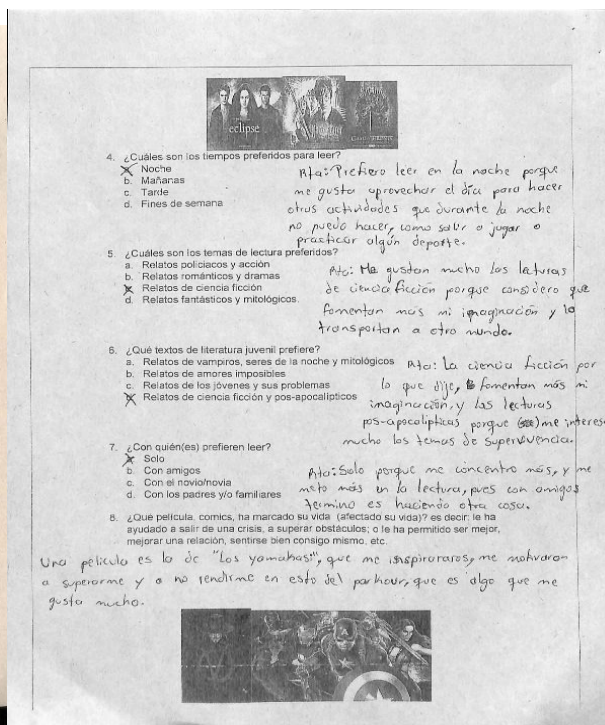 eclipse
4. ¿Cuáles son los tiempos preferidos para leer?
Noche
b. Mañanas
c. Tarde
d. Fines de semana
Rta: Prefiero leer en la noche porque
me gusta aprovechar el día para hacer
otras actividades que durante la noche
no puedo hacer, como salir a jugar o
practicar algún deporte.
5. ¿Cuáles son los temas de lectura preferidos?
a. Relatos policiacos y acción
b. Relatos románticos y dramas
Relatos de ciencia ficción
d. Relatos fantásticos y mitológicos.
Rta: Me gustan mucho las lecturas
de ciencia ficción porque considero que
fomentan más mi imaginación y la
transportan a otro mundo.
6. ¿Qué textos de literatura juvenil prefiere?
a. Relatos de vampiros, seres de la noche y mitológicos
b. Relatos de amores imposibles
c. Relatos de los jóvenes y sus problemas
Relatos de ciencia ficción y pos-apocalípticos
Rta: La ciencia ficción por
lo que dije, fomentan más mi
imaginación, y las lecturas
pos-apocalípticas porque me interes
mucho los temas de supervivencia.
7. ¿Con quién(es) prefieren leer?
Solo
b. Con amigos
c. Con el novio/novia
d. Con los padres y/o familiares
Rta: Solo porque me concentro más, y me
meto más en la lectura, pues con amigos
termino es haciendo otra cosa.
8. ¿Qué película, comics, ha marcado su vida (afectado su vida)? es decir, le ha
ayudado a salir de una crisis, a superar obstáculos; o le ha permitido ser mejor,
mejorar una relación, sentirse bien consigo mismo, etc.
Una película es la de "Los yamakasi", que me , me motivaron
a superarme y a no rendirme en esto del parkour, que es algo que me
gusta mucho.